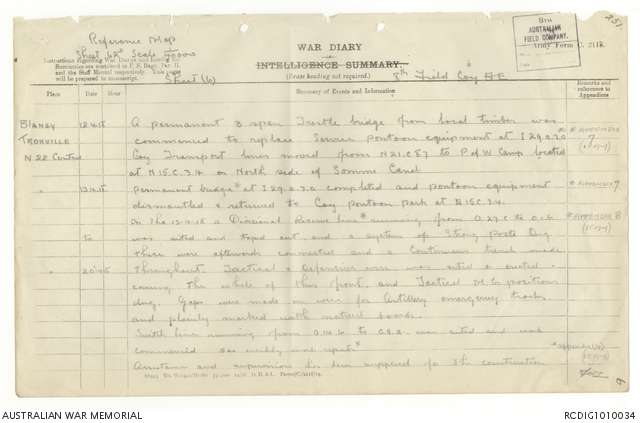 Reference Map
Sheet 62D Scale 1/40000
Sheet (6)
WAR DIARY
or
INTELLIGENCE SUMMARY.
(Erase heading not required.)
8th Field Coy A.E.
8TH
AUSTRALIAN
FIELD COMPANY.
Army Form C. 2118.
Instructions regarding War Diaries and Intelligence
Summaries are contained in F. S. Regs., Part II.
and the Staff Manual respectively. Title pages
will be prepared in manuscript.
Place
Date
Hour
Summary of Events and Information
Remarks and
references to
Appendices
BLANGY 12.4.18 A permanent 3 span Trestle bridge from local timber was
TRONVILLE commenced to replace Service pontoon equipment at
N 22 Central Coy Transport lines moved from N21.C.8.7 to P of W Camp located
at N 15.C.3.4 on North side of Somme Canal
" 13.4.18 permanent bridge at I 29.a.3.0 completed and pontoon equipment
dismantled & returned to Coy pontoon park at N15C.3.4.
On the 13.4.18 a Divisional Reserve line running from O.27.C to O.1.b
to was sited and taped out and a system of Strong Posts dug
these were afterwards connected and a Continuous trench made
" 20.4.18 throughout. Tactical & Defensive wire was sited & erected
covering the whole of this front, and Tactical M.G. positions
dug. Gaps were made in wire for Artillery emergency tracks
and plainly marked with notice boards.
Switch line running from to was sited and work
commenced see weekly work reports
Assistance and supervision has been supplied for the construction
* APPENDIX
7
* APPENDIX 7
* APPENDIX 8
AUSTRALIAN WAR MEMORIAL
RCDIG1010034